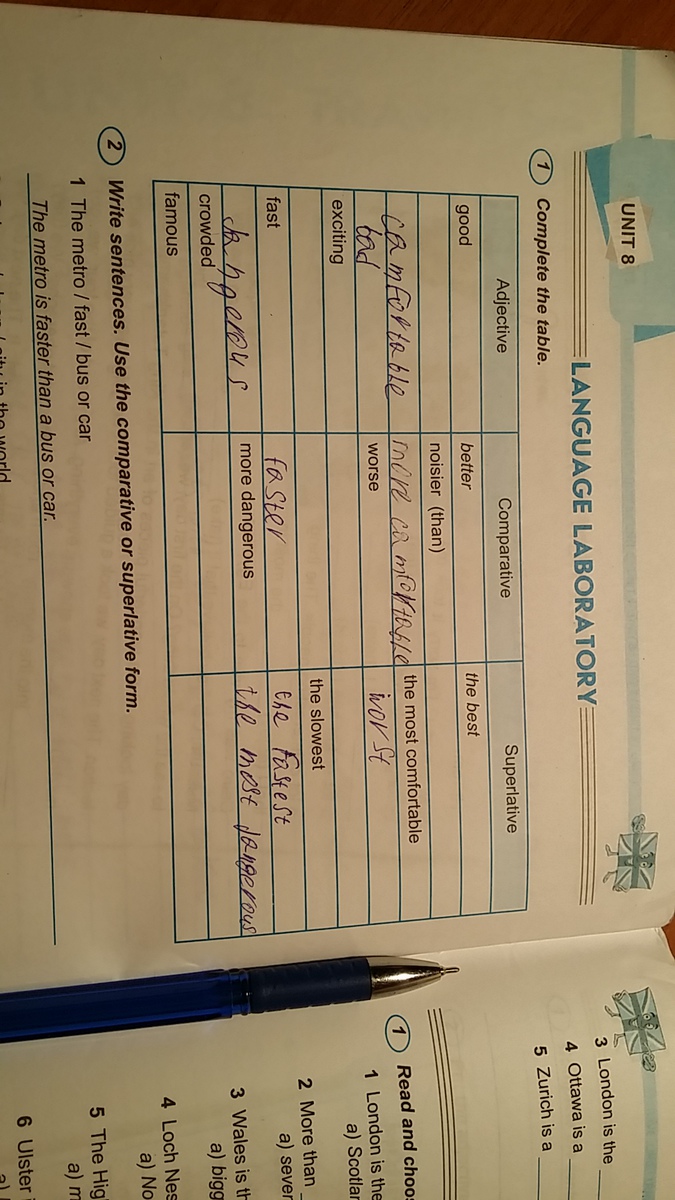 UNIT 8
LANGUAGE LABORATORY
1 Complete the table.
Adjective Comparative Superlative
good better the best
noisier (than)
camfortable more camfortable the most comfortable
bad worse worst
exciting
the slowest
fast faster the fastest
dangerous more dangerous the most dangerous
crowded
famous
2 Write sentences. Use the comparative or superlative form.
1 The metro / fast / bus or car
The metro is faster than a bus or car.
city in the world
3 London is the
4 Ottawa is a
5 Zurich is a
1 Read and choos
1 London is the
a) Scotlan
2 More than
a) sever
3 Wales is th
a) bigg
4 Loch Nes
a) No
5 The Hig
a) m
6 Ulster i
a)